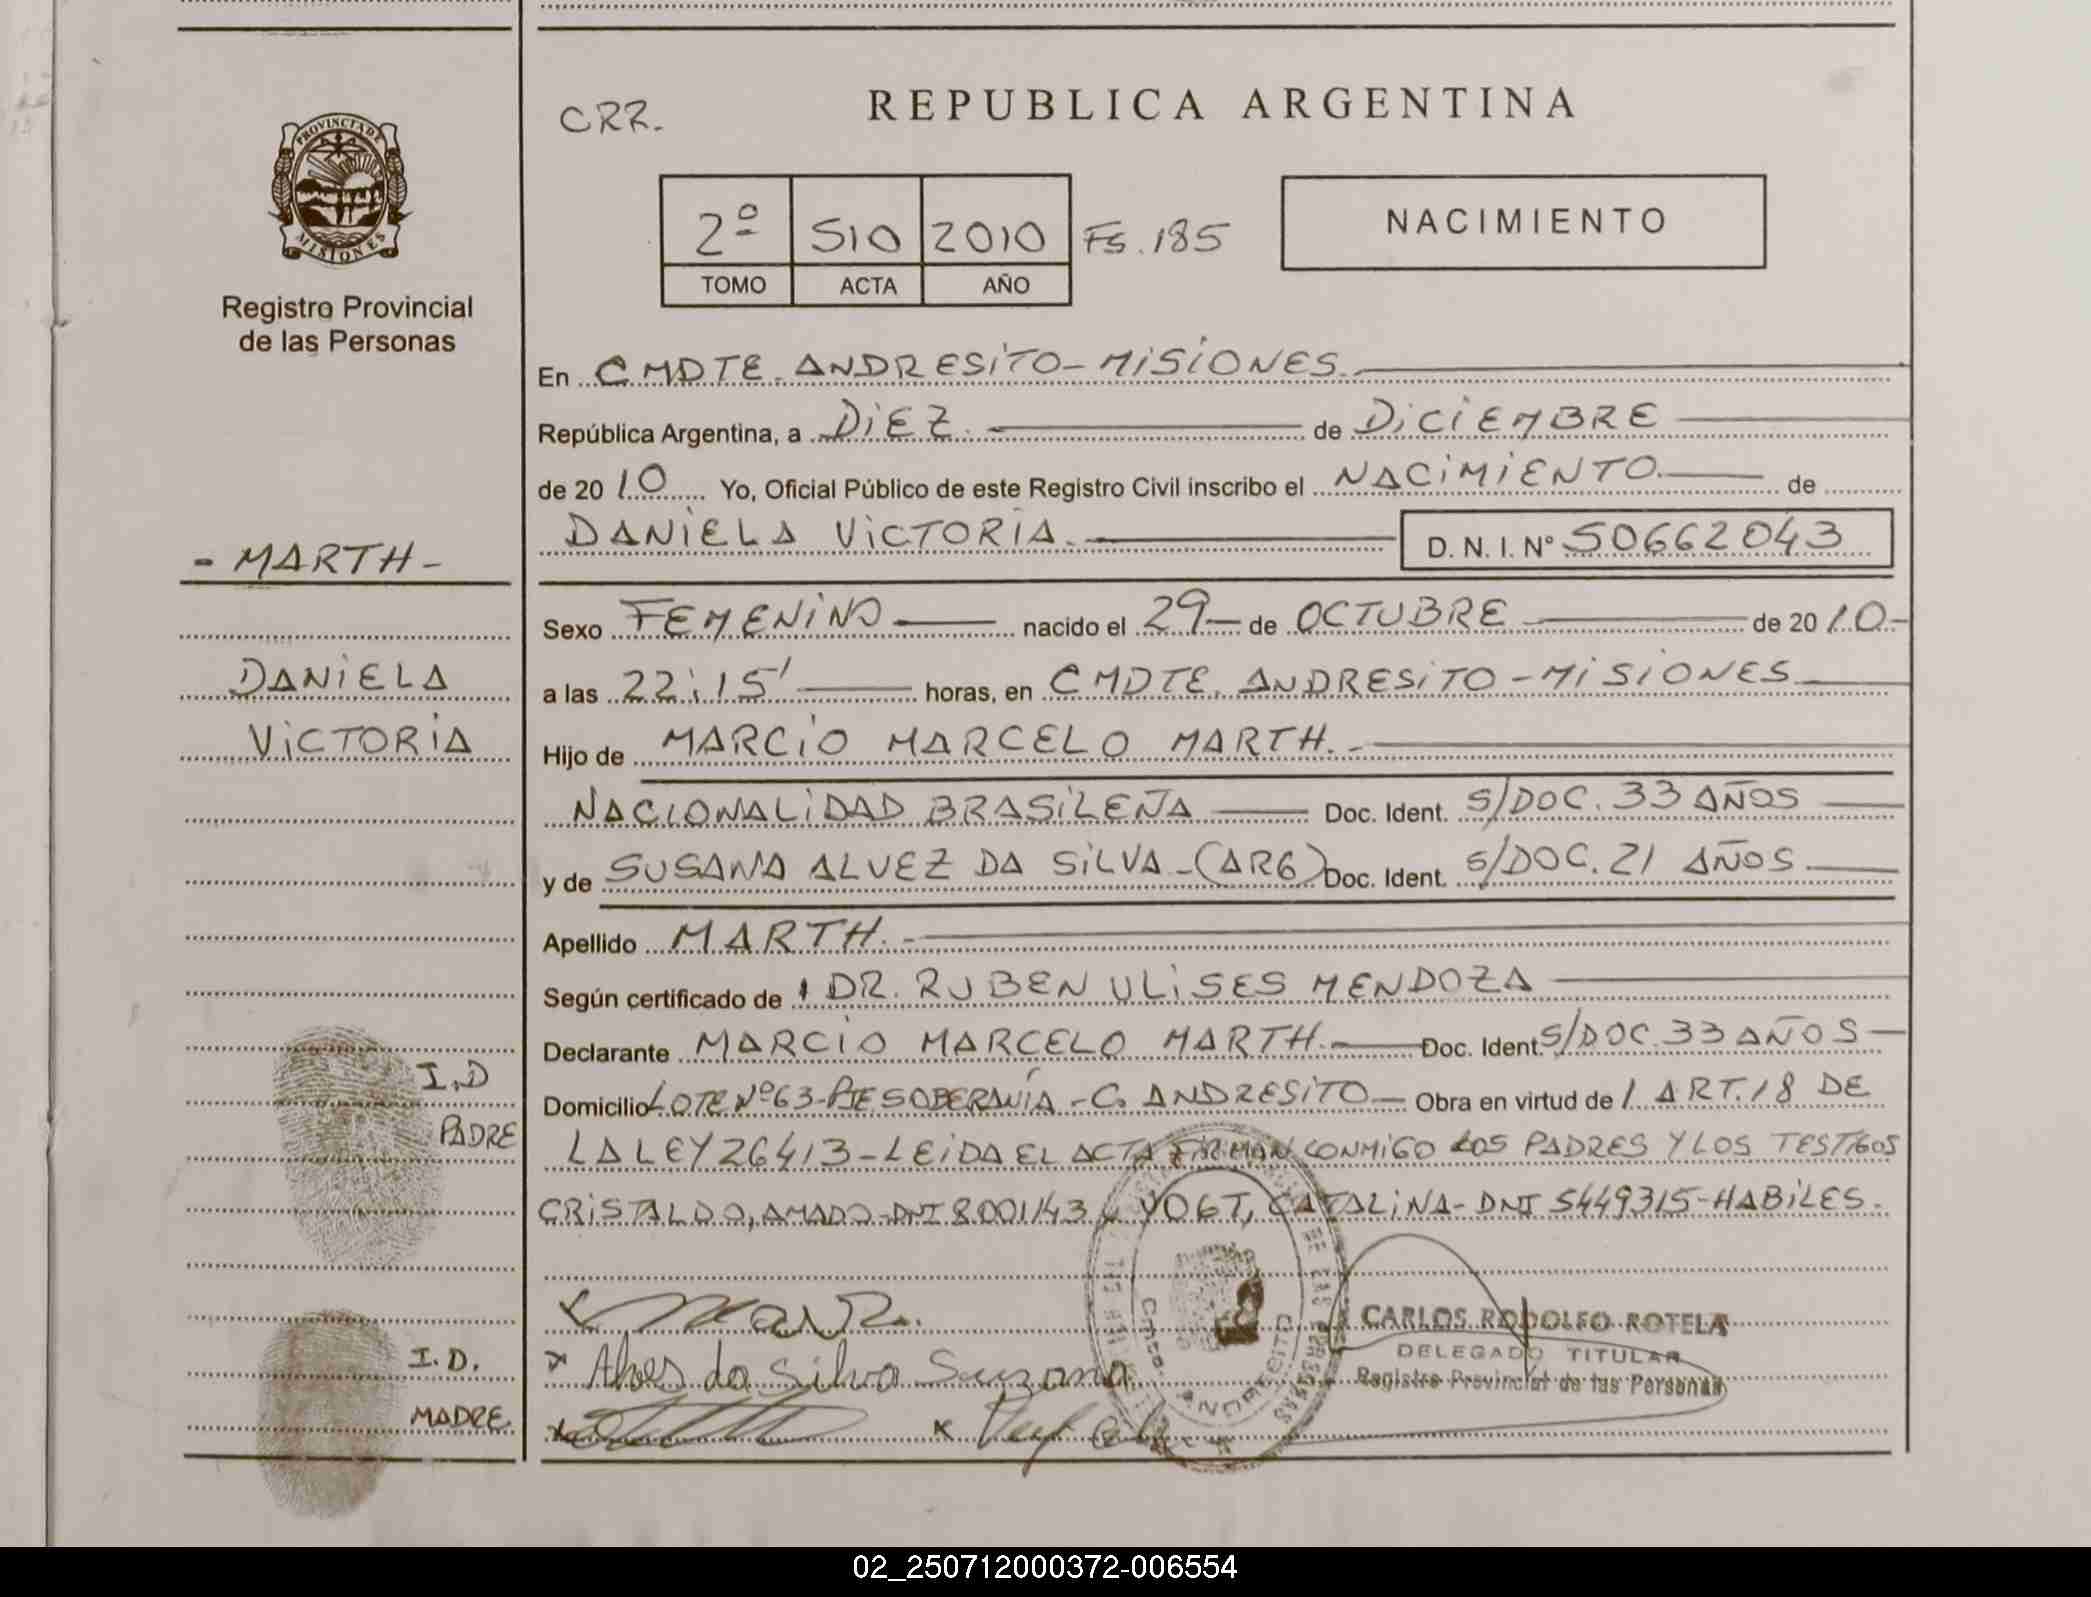 PROVINCIA DE
MISIONES
Registro Provincial
de las Personas
- MARTH -
DANIELA
VICTORIA
I.D
PADRE
I.D.
MADRE
CRR.
REPUBLICA ARGENTINA
2º 510 2010 Fs. 185
TOMO ACTA AÑO
NACIMIENTO
En CMDTE. ANDRESITO - MISIONES.
República Argentina, a DIEZ. de DICIEMBRE
de 2010 Yo, Oficial Público de este Registro Civil inscribo el NACIMIENTO de
DANIELA VICTORIA. D. N. I. Nº 50662043
Sexo FEMENINO nacido el 29 de OCTUBRE de 2010-
a las 22:15' horas, en CMDTE. ANDRESITO - MISIONES
Hijo de MARCIO MARCELO MARTH. -
NACIONALIDAD BRASILEÑA Doc. Ident. S/DOC. 33 AÑOS
y de SUSANA ALVEZ DA SILVA - (ARG) Doc. Ident. S/DOC. 21 AÑOS
Apellido MARTH. -
Según certificado de DR. RUBEN ULISES MENDOZA
Declarante MARCIO MARCELO MARTH. Doc. Ident. S/DOC. 33 AÑOS
Domicilio LOTE Nº 63 - PJE SOBERANÍA - C. ANDRESITO Obra en virtud de ART. 18 DE
LA LEY 26413 - LEIDA EL ACTA FIRMAN CONMIGO LOS PADRES Y LOS TESTIGOS
CRISTALDO, AMADO - DNI 8001143 y VOGT, CATALINA - DNI 5449315 - HABILES.
Alves da Silva Suzana
CARLOS RODOLFO ROTELA
DELEGADO TITULAR
Registro Provincial de las Personas
Cmte. ANDRESITO
02_250712000372-006554